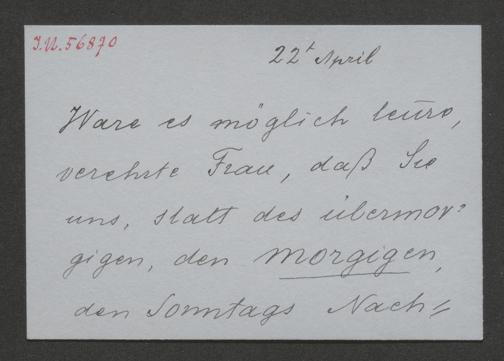 I.N. 56870
22t April
Ware es möglich teure,
verehrte Frau, daß Sie
uns, statt des übermor-
gigen, den morgigen,
den Sonntags Nach=